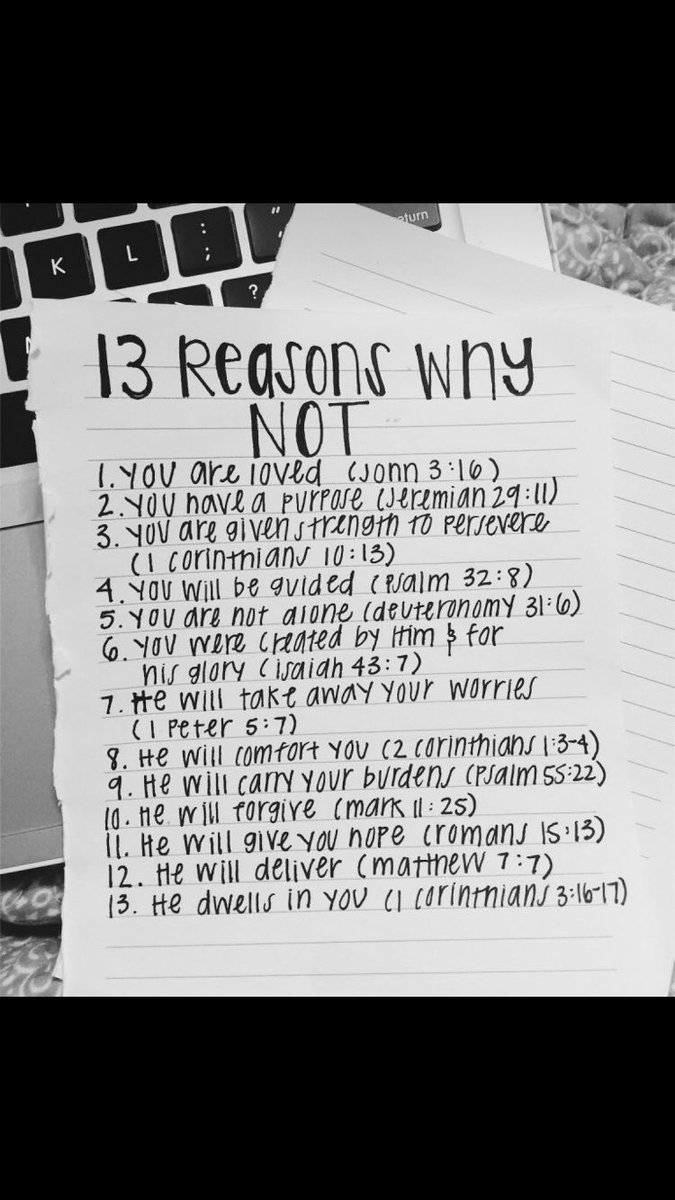 K
L
:
;
"
'
return
?
13 Reasons Why
NOT
1. You are loved (John 3:16)
2. You have a purpose (Jeremiah 29:11)
3. You are given strength to persevere
(1 Corinthians 10:13)
4. You will be guided (Psalm 32:8)
5. You are not alone (deuteronomy 31:6)
6. You were created by Him & for
his glory (isaiah 43:7)
7. He will take away your worries
(1 Peter 5:7)
8. He will comfort you (2 corinthians 1:3-4)
9. He will carry your burdens (Psalm 55:22)
10. He will forgive (mark 11:25)
11. He will give you hope (romans 15:13)
12. He will deliver (matthew 7:7)
13. He dwells in you (1 corinthians 3:16-17)